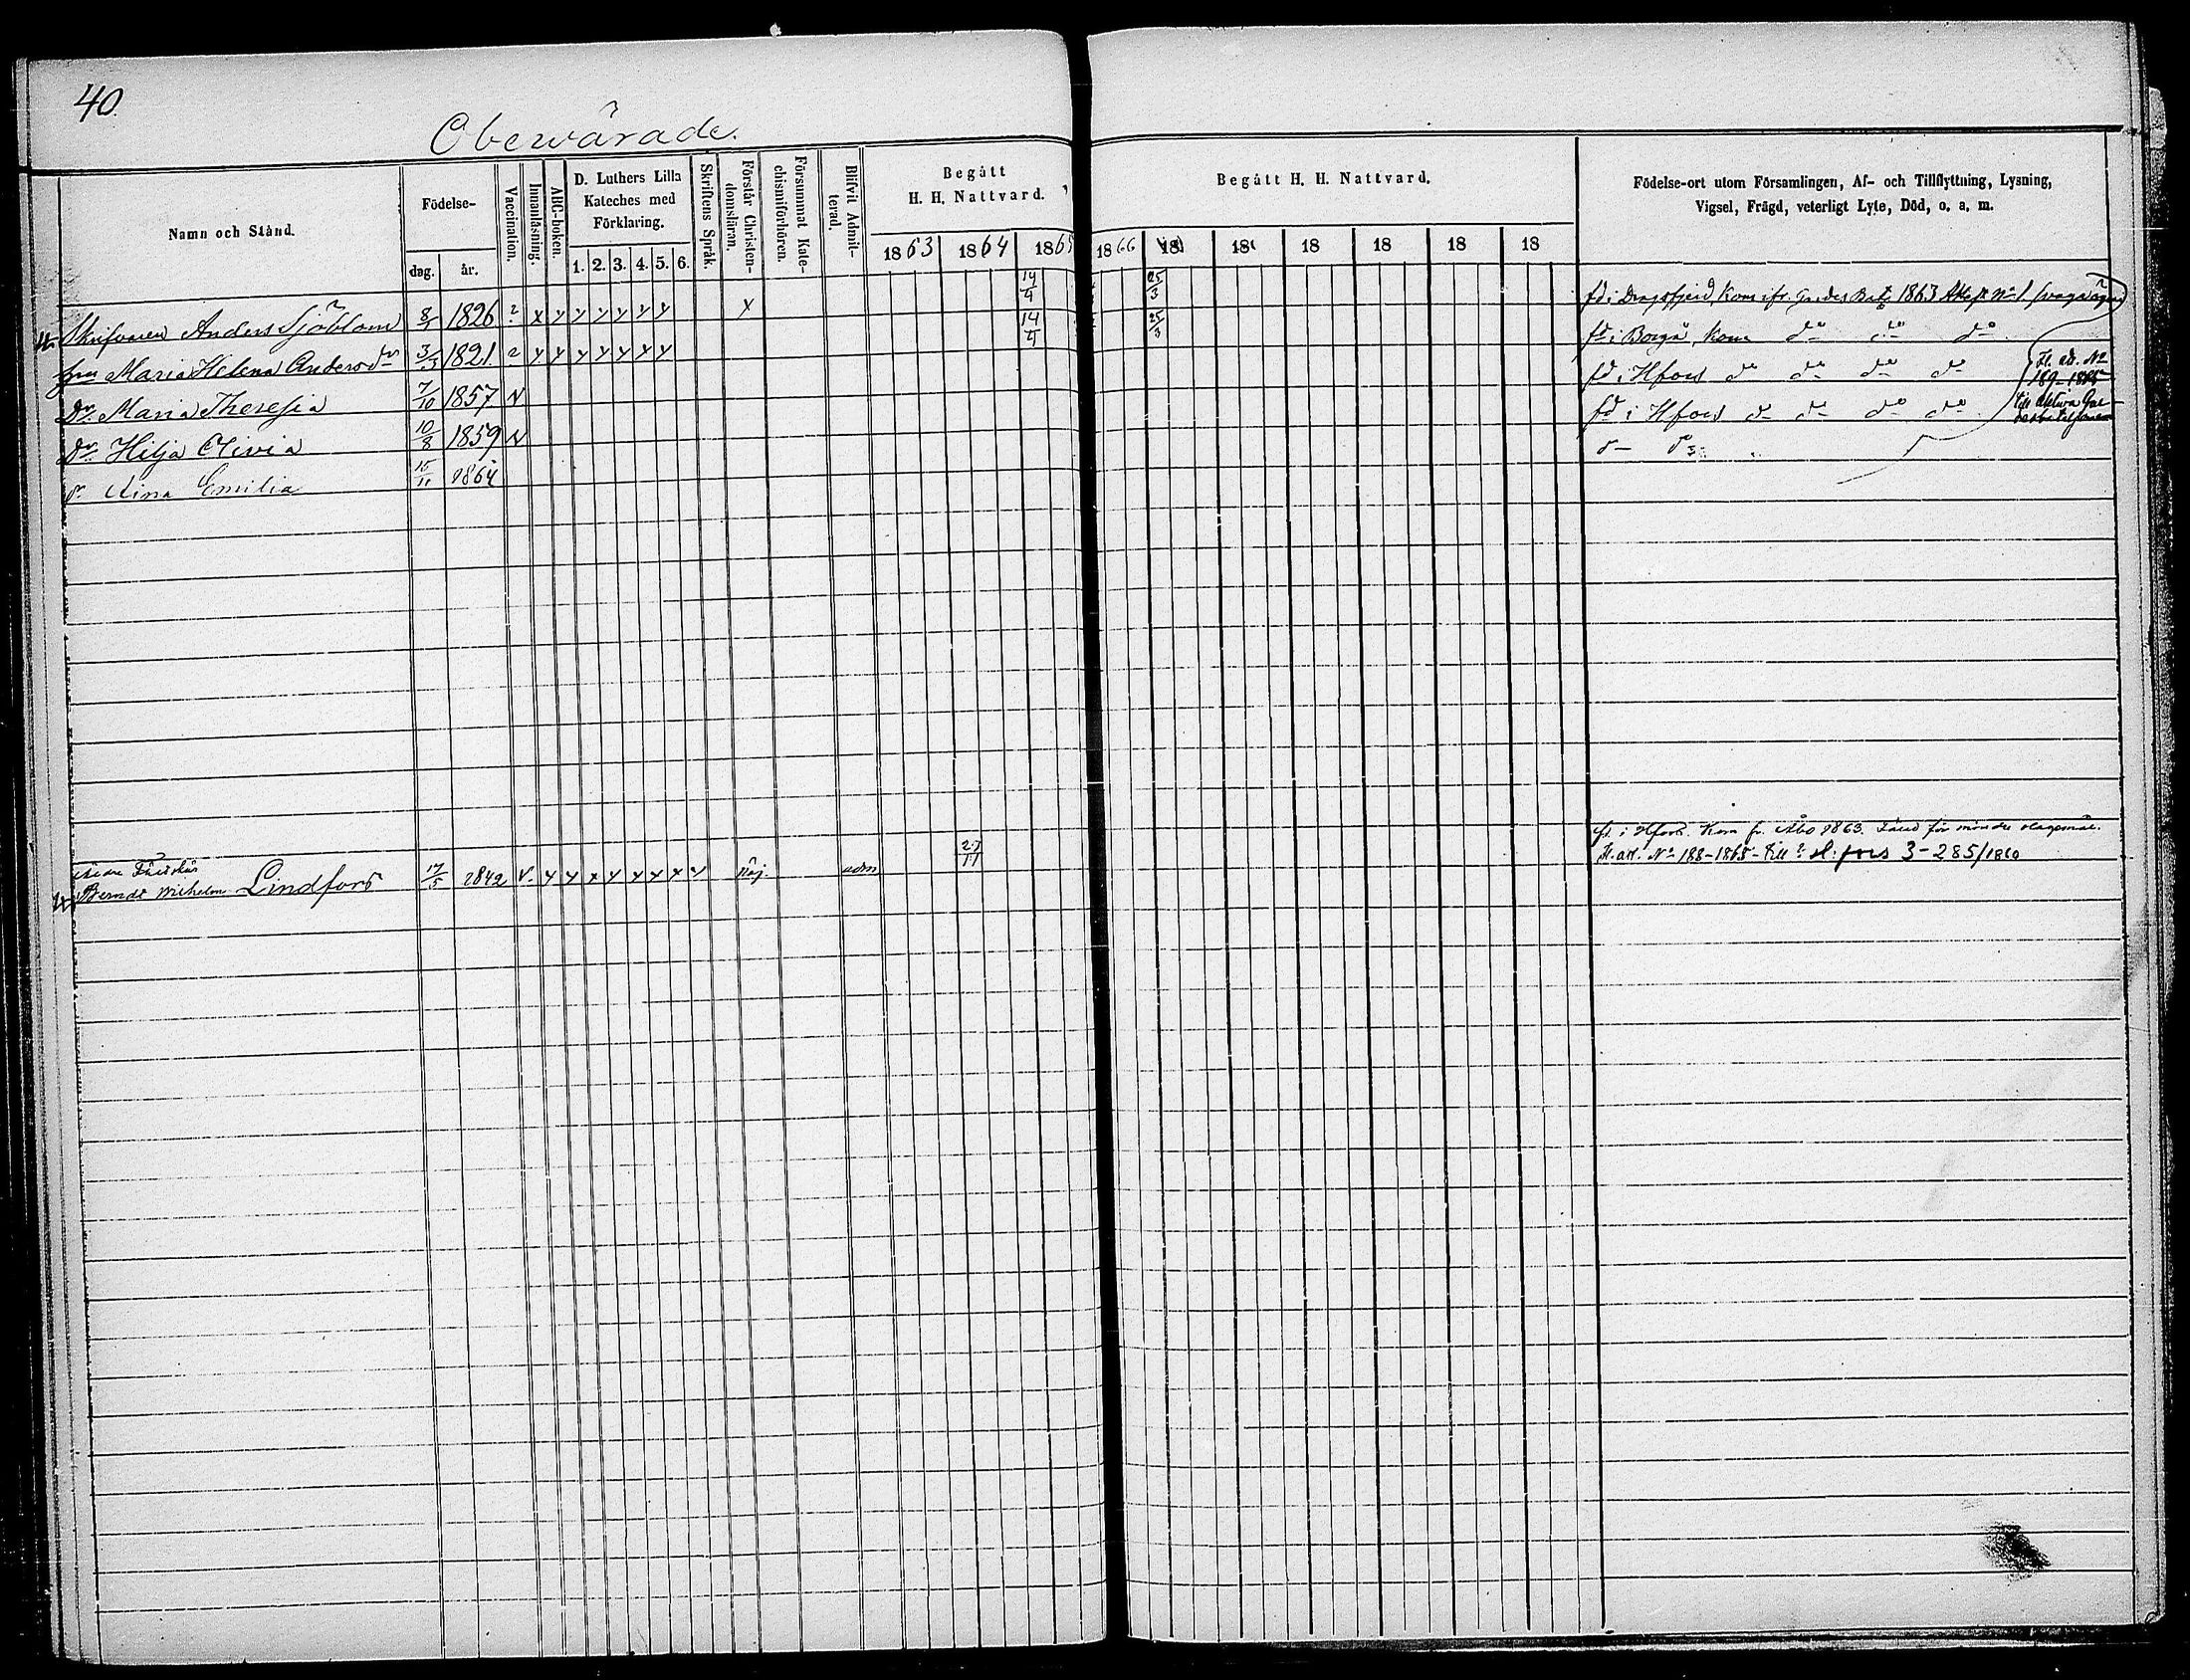 40.
Obewårade.
Namn och Stånd.
Födelse-
dag. år.
Vaccination.
Innanläsning.
ABC-boken.
D. Luthers Lilla
Kateches med
Förklaring.
1. 2. 3. 4. 5. 6.
Skriftens Språk.
Förstår Christen-
domsläran.
Försummat Kate-
chismiförhören.
Blifvit Admit-
terad.
Begått
H. H. Nattvard.
1863 1864 1865
Begått H. H. Nattvard.
1866 18 18 18 18 18 18
Födelse-ort utom Församlingen, Af- och Tillflyttning, Lysning,
Vigsel, Frägd, veterligt Lyte, Död, o. a. m.
Skrifvaren Anders Sjöblom 8/1 1826 ? x y y y y y y x 14/4 25/3 fd i Dragsfjerd Kom ifr. Gardes Bat: 1863 Attest No 1
hu Maria Helena Andersdr 3/3 1821. ? y y y y y y y 14/4 25/3 fd i Borgå, Kom do do do
Dr Maria Theresia 7/10 1857 v fd i Hfors do do do do
Fl. att. No
189-1865
Dr Hilja Olivia 10/8 1859 v fd i Hfors do do do do
till
dr Aina Emilia 15/11 1864 d- do
fd. i Hfors. Kom fr. Åbo 1863.
Berndt Wilhelm Lindfors 17/5 1842 v. y y x y y y x y Nöj. adm 27/11 Fl. att. No 188-1865- till H:fors 3-285/1860